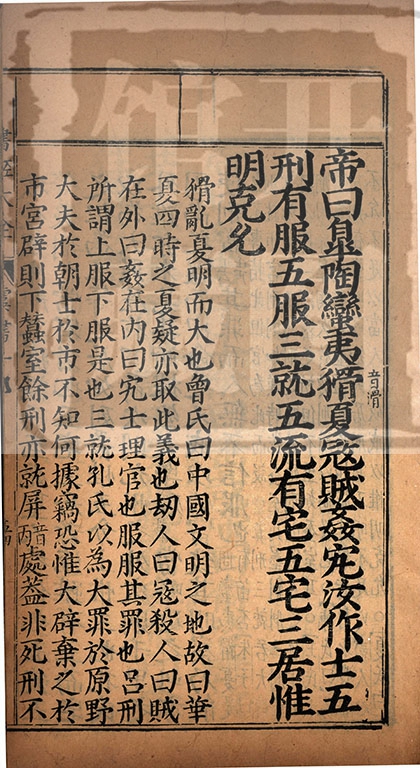 帝曰皐陶蠻夷猾夏宼賊姦宄汝作士五
刑有服五服三就五流有宅五宅三居惟
明克允
音滑
猾亂夏明而大也曾氏曰中國文明之地故曰華
夏四時之夏疑亦取此義也劫人曰宼殺人曰賊
在外曰姦在内曰宄士理官也服服其罪也呂刑
所謂上服下服是也三就孔氏以為大罪於原野
大夫於朝士於市不知何據竊恐惟大辟棄之於
市宮辟則下蠶室餘刑亦就屏音丙處蓋非死刑不